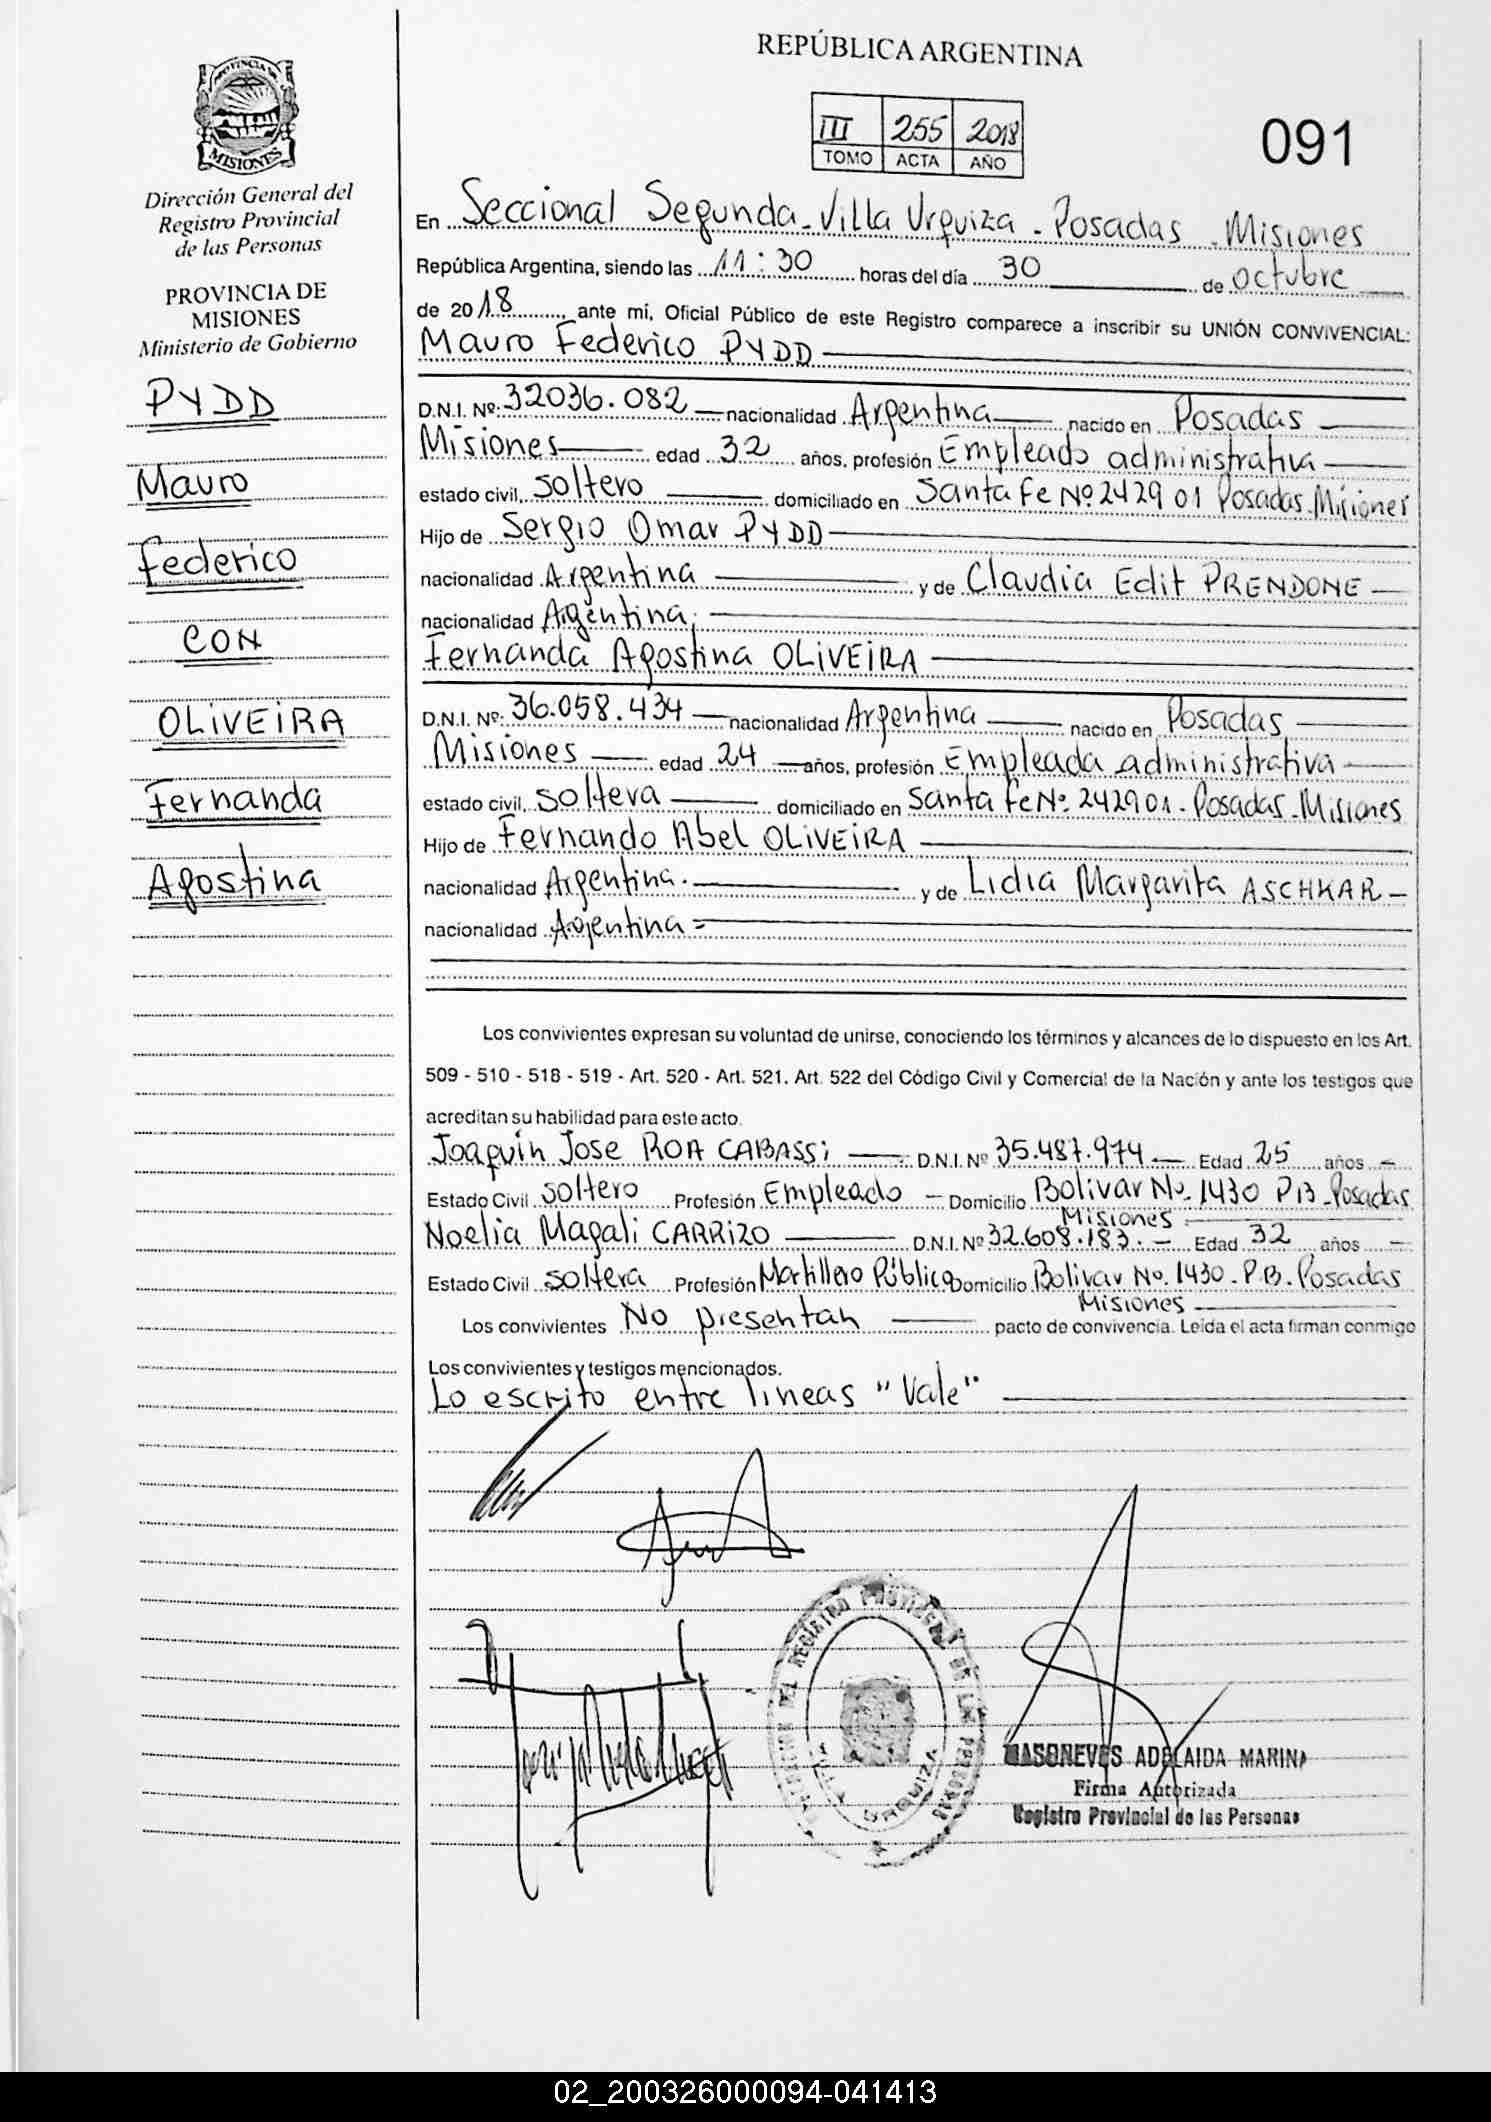 REPÚBLICA ARGENTINA
III 255 2018
TOMO ACTA AÑO
091
PROVINCIA DE
MISIONES
Dirección General del
Registro Provincial
de las Personas
PROVINCIA DE
MISIONES
Ministerio de Gobierno
PYDD
Mauro
Federico
CON
OLIVEIRA
Fernanda
Agostina
En Seccional Segunda - Villa Urquiza - Posadas - Misiones
República Argentina, siendo las 11:30 horas del día 30 de octubre
de 2018 ante mi, Oficial Público de este Registro comparece a inscribir su UNIÓN CONVIVENCIAL:
Mauro Federico PYDD
D.N.I. Nº: 32036.082 nacionalidad Argentina nacido en Posadas
Misiones edad 32 años, profesión Empleado administrativa
estado civil, soltero domiciliado en Santa Fe Nº 2429 01 Posadas - Misiones
Hijo de Sergio Omar PYDD
nacionalidad Argentina y de Claudia Edit PRENDONE
nacionalidad Argentina.
Fernanda Agostina OLIVEIRA
D.N.I. Nº: 36.058.434 nacionalidad Argentina nacido en Posadas
Misiones edad 24 años, profesión Empleada administrativa
estado civil, soltera domiciliado en Santa Fe Nº 2429 01 - Posadas - Misiones
Hijo de Fernando Abel OLIVEIRA
nacionalidad Argentina. y de Lidia Margarita ASCHKAR
nacionalidad Argentina
Los convivientes expresan su voluntad de unirse, conociendo los términos y alcances de lo dispuesto en los Art.
509 - 510 - 518 - 519 - Art. 520 - Art. 521. Art. 522 del Código Civil y Comercial de la Nación y ante los testigos que
acreditan su habilidad para este acto.
Joaquín Jose ROA CABASSI D.N.I. Nº 35.487.974 Edad 25 años
Estado Civil soltero Profesión Empleado Domicilio Bolivar No. 1430 PB - Posadas
Misiones
Noelia Magali CARRIZO D.N.I. Nº 32.608.183. Edad 32 años
Estado Civil soltera Profesión Martillero Público Domicilio Bolivar No. 1430 - P.B. Posadas
Misiones
Los convivientes No presentan pacto de convivencia. Leida el acta firman conmigo
Los convivientes y testigos mencionados.
Lo escrito entre lineas "Vale"
DEL REGISTRO PROVINCIAL DE LAS PERSONAS
VILLA URQUIZA
MASONEVES ADELAIDA MARINA
Firma Autorizada
Registro Provincial de las Personas
02_200326000094-041413